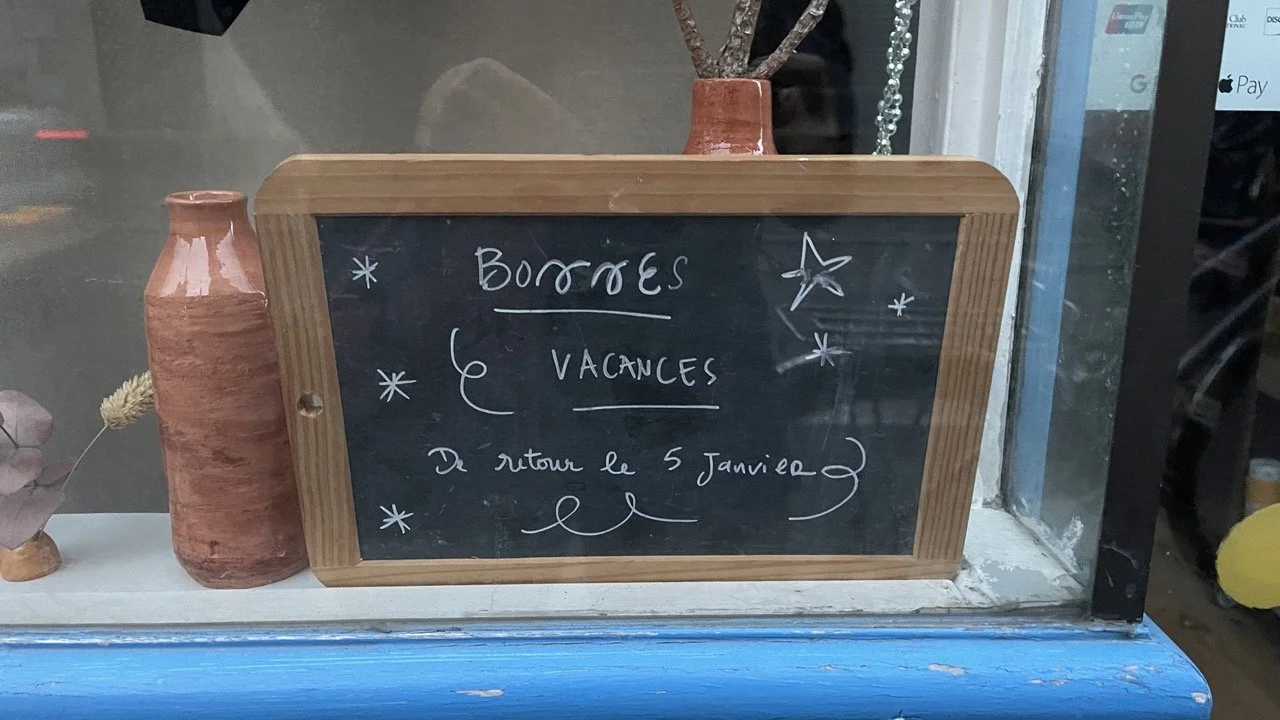 BonnES
VACANCES
De retour le 5 Janvier
UnionPay
Club
DISC
G
Pay